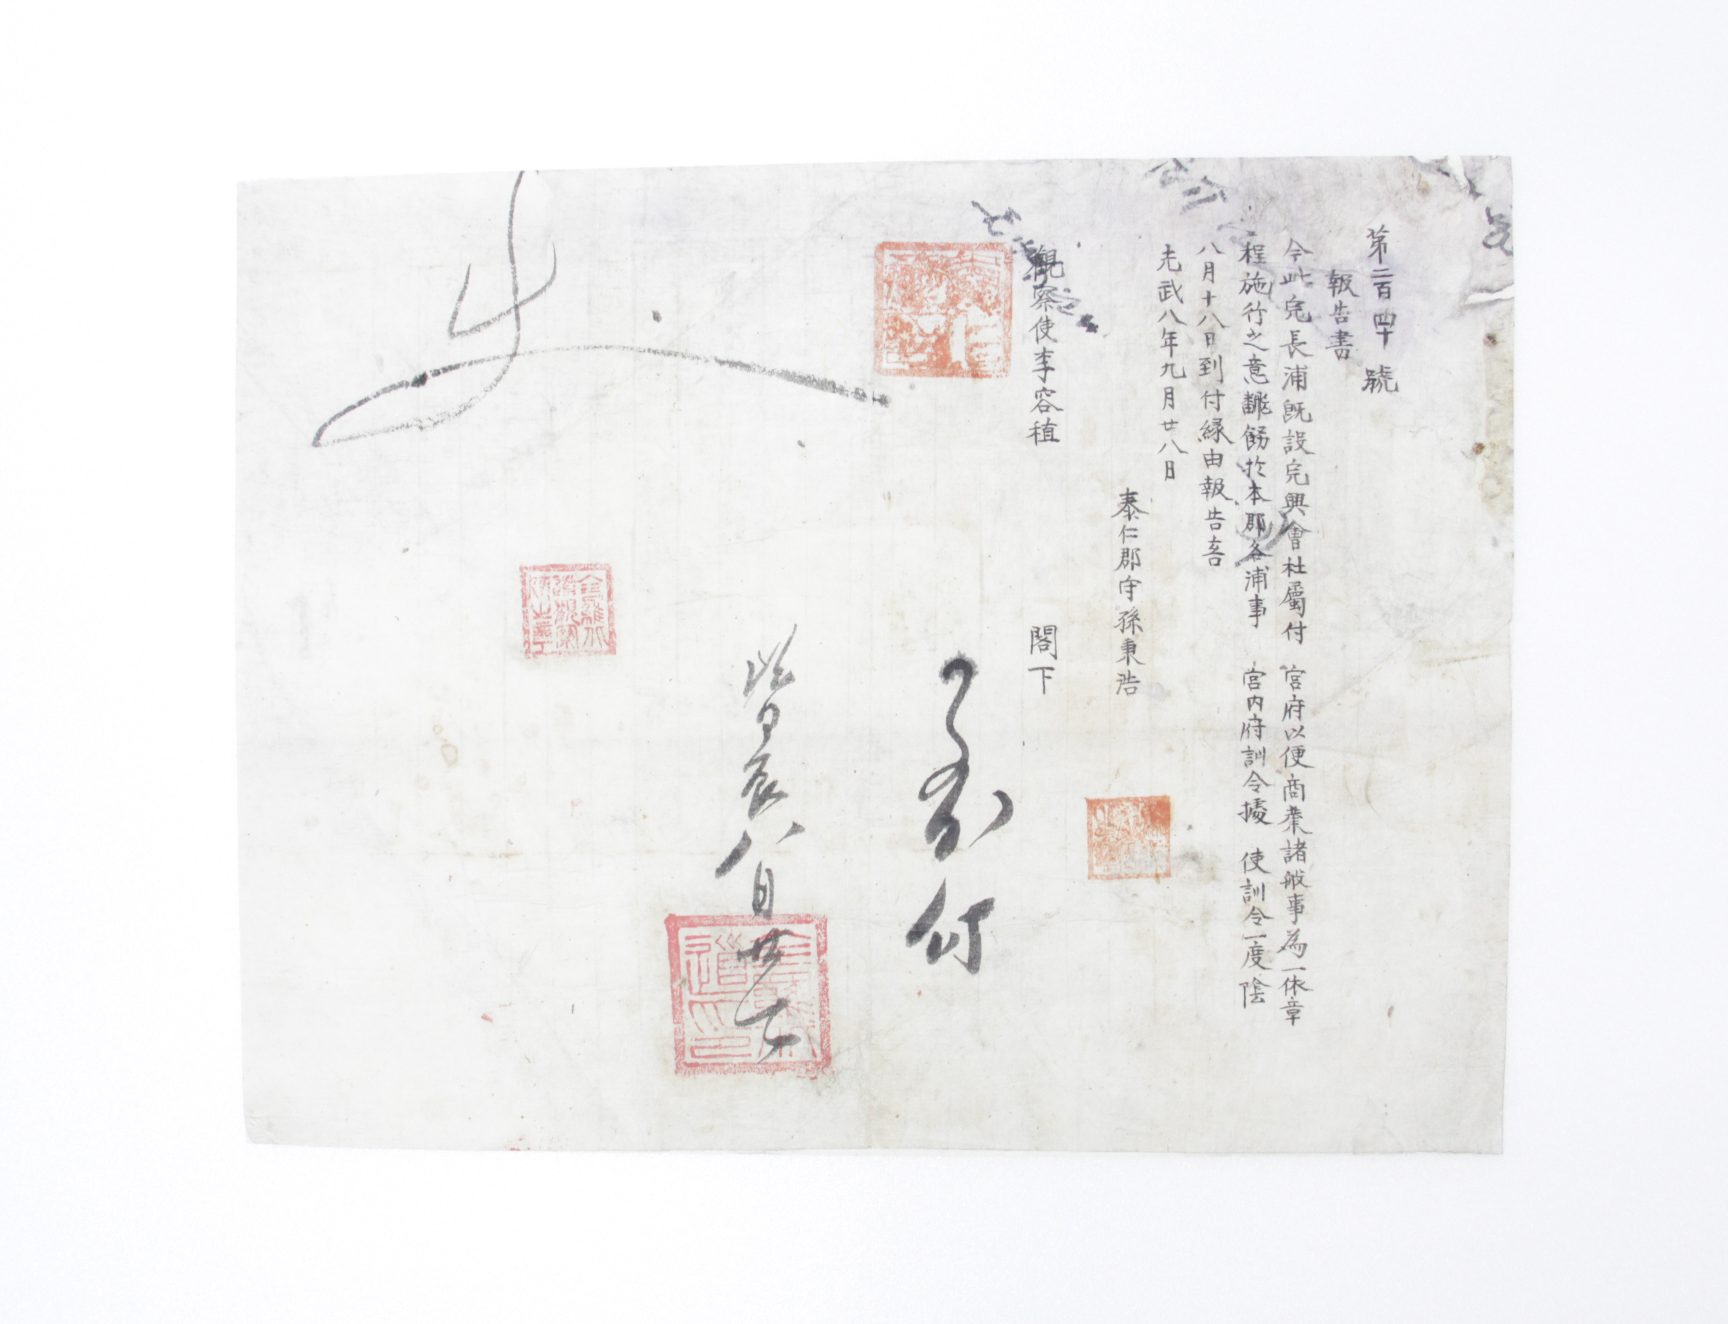 第二百四十號
報告書
今此完長浦旣設完興會社屬付 宮府以便商業諸般事為一依章
程施行之意翻飭於本郡各浦事 宮内府訓令據 使訓令一度陰
八月十八日到付緣由報告喜
光武八年九月廿八日
泰仁郡守孫秉浩
觀察使李容稙 閣下
到付
甲辰八月廿